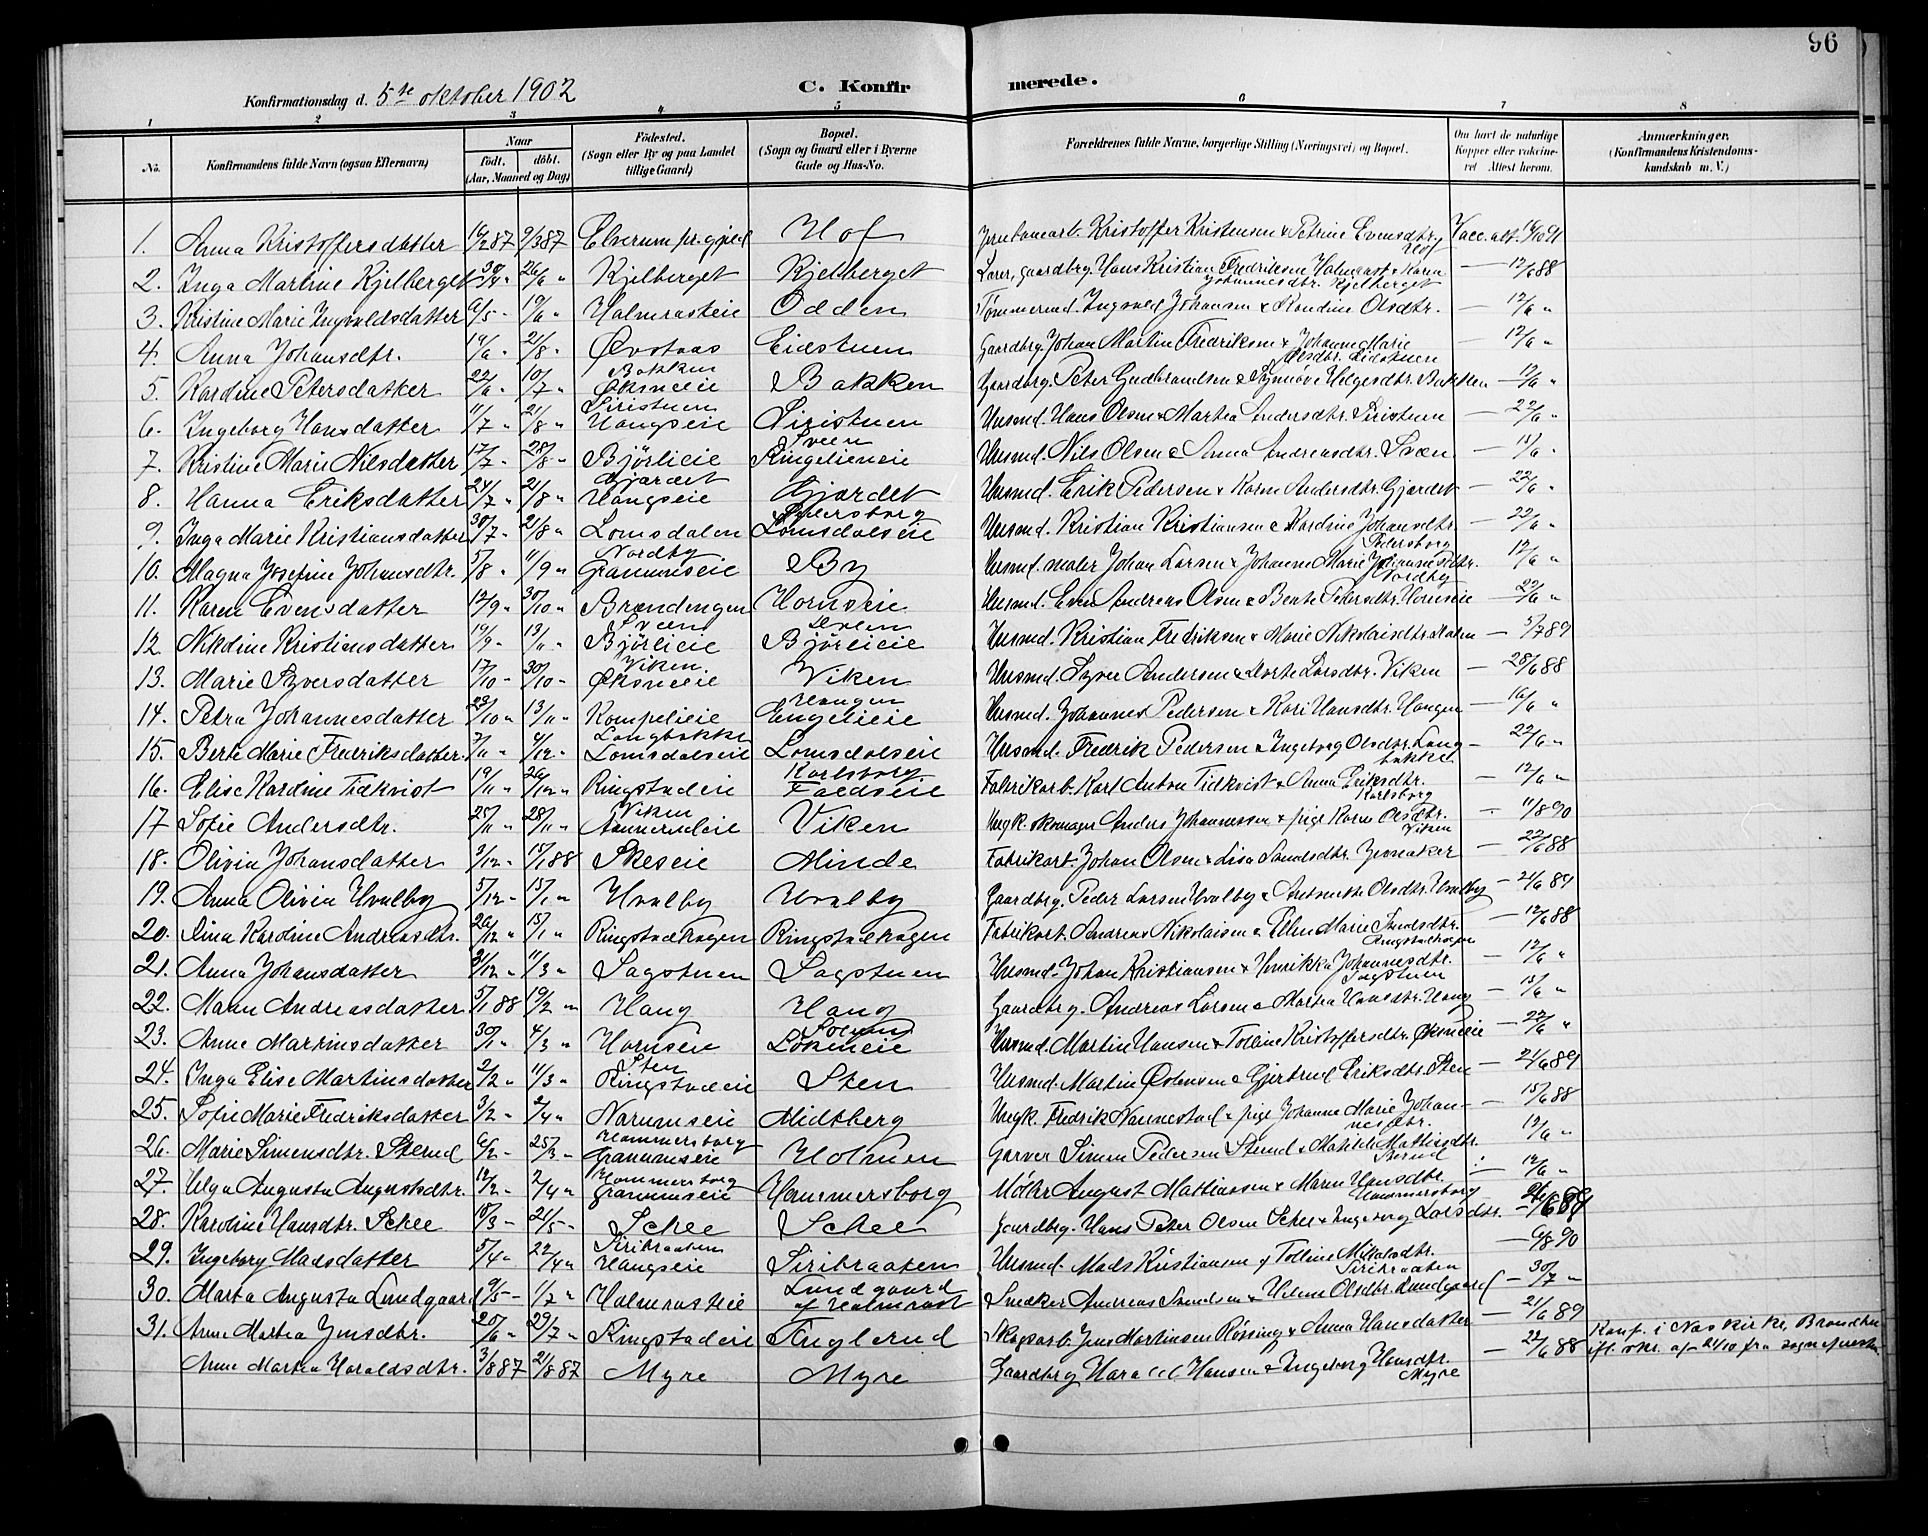 96
Konfirmationsdag d. 5te oktober 1902
C. Konfirmerede.
1 2 3 4 5 6 7 8
No.
Konfirmandens fulde Navn (ogsaa Efternavn)
Naar
født. døbt.
(Aar, Maaned og Dag)
Fødested.
(Sogn eller By og paa Landet
tillige Gaard)
Bopæl.
(Sogn og Gaard eller i Byerne
Gade og Hus-No.
Forældrenes fulde Navne, borgerlige Stilling (Næringsvei) og Bopæl.
Om havt de naturlige
Kopper eller vakcine-
ret Attest herom.
Anmærkninger.
(Konfirmandens Kristendoms-
kundskab m. V.)
1. Anna Kristoffersdatter 16/2 87 9/3 87 Elverum pr.gjeld Hof Jernbanearb. Kristoffer Kristensen & Petrine Evensdtr. Hof Vacc. att.
2. Inga Martine Kjelberget 30/4 " 26/6 " Kjelberget Kjelberget Lærer, gaardbrg. Hans Kristian Fredriksen Halmrast & Karen Johannesdtr. Kjelberget — 12/6 88
3. Kristine Marie Ingvaldsdatter 6/5 - 19/6 " Halmrasteie Odden Tømmermd. Ingvald Johansen & Kardine Olsdtr. — 12/6 "
4. Anna Johansdtr. 19/6 - 21/8 " Øvstaas Eidstuen Gaardbrg. Johan Martin Fredriksen & Johanne Marie Olsdtr. Eidstuen — 12/6 "
5. Kardine Petersdatter 22/6 " 10/7 " Bakken Øksneeie Bakken Gaardbrg. Peter Gudbrandsen & Synnøve Helgesdtr. Bakken — 12/6 "
6. Ingeborg Hansdatter 11/7 " 21/8 " Siristuen Haugseie Siristuen Husmd. Hans Olsen & Martea Andersdtr. Siristuen — 22/6 "
7. Kristine Marie Nilsdatter 17/7 - 28/8 - Bjørlieie Sveen Ringelieneie Husmd. Nils Olsen & Anna Andreasdtr. Sveen — 15/6 "
8. Hanna Eriksdatter 24/7 " 21/8 " Gjærdet Haugseie Gjærdet Husmd. Erik Pedersen & Karen Andersdtr. Gjærdet — 22/6 "
9. Inga Marie Kristiansdatter 30/7 - 21/8 " Lomsdalen Pedersborg Lomsdalseie Husmd. Kristian Kristiansen & Kardine Johansdtr. Pedersborg — 22/6 "
10. Magna Josefine Johansdtr. 5/8 " 11/9 " Nordby Granumseie By Husmd. maler Johan Larsen & Johanne Marie Johannesdtr. Nordby — 12/6 "
11. Karen Evensdatter 12/9 " 30/10 " Brændengen Hornseie Husmd. Even Andreas Olsen & Beate Petersdtr. Hornseie — 22/6 "
12 Nikoline Kristiansdatter 19/9 " 13/11 " Sveen Bjørlieie Sveen Bjørlieie Husmd. Kristian Fredriksen & Marie Nikolaisdtr. — 5/7 89
13. Marie Syversdatter 17/10 - 30/10 - Viken Øksneeie Viken Husmd. Syver Andersen & Marte Larsdtr. Viken — 28/6 88
14. Petra Johannesdatter 23/10 " 13/11 " Kompelieie Haugen Engelieie Husmd. Johannes Pedersen & Kari Hansdtr. Haugen — 16/6 "
15. Berte Marie Fredriksdatter 3/11 " 4/12 - Langbakke Lomsdalseie Lomsdalseie Husmd. Fredrik Pedersen & Ingeborg Olsdtr. Langbakke — 22/6 "
16. Elise Kardine Tidkvist 19/11 " 26/12 " Ringstadeie Karlsborg Faldseie Fabrikarb. Karl Anton Tidkvist & Anna Eriksdtr. Karlsborg — 12/6 "
17 Sofie Andersdtr. 25/11 " 28/11 " Viken Viken Ungk. skomager Anders Johannessen & pige Karen Olsdtr. Viken — 11/8 90
18. Olivia Johansdatter 3/12 - 15/1 88 Skeseie Minde Fabrikarb. Johan Olsen & Lisa Jevnaker — 22/6 88
19. Anna Olivia Hvalby 5/12 - 15/1 " Hvalby Hvalby Gaardbrg. Peder Larsen Hvalby & Antonette Olsdtr. Hvalby — 21/6 89
20. Lina Karoline Andreasdtr. 26/12 " 15/1 " Ringstadhagen Ringstadhagen Fabrikarb. Andreas Nikolaisen & Ellen Marie Ringstadhagen — 12/6 88
21. Anna Johansdatter 31/12 " 11/3 " Sagstuen Sagstuen Husmd. Johan Kristiansen & Henrikka Johannesdtr. Sagstuen — 12/6 "
22. Maren Andreasdatter 5/1 88 19/2 " Haug Haug Gaardbrg. Andreas Larsen & Martea Hansdtr. Haug — 15/6 "
23. Anne Martinsdatter 30/1 " 4/3 " Hornseie Husmd. Martin Hansen & Tolline Kristoffersdtr. Øksneeie — 22/6 "
24. Inga Elise Martinsdatter 2/2 " 11/3 " Sten Ringstadeie Sten Husmd. Martin Østensen & Gjertrud Eriksdtr. Sten — 21/6 89
25. Sofie Marie Fredriksdatter 3/2 " 2/4 " Narumseie Midtberg Ungk. Fredrik Nannestad & pige Johanne Marie Johannesdtr. — 15/6 88
26. Marie Simensdtr. Sterud 6/2 - 25/3 - Hammersborg Granumseie Holmen Garver Simen Pedersen Sterud & Mathilde Mathisdtr. Sterud — 12/6 "
27. Helga Augusta Augustsdtr. 12/2 - 2/4 " Hammersborg Granumseie Hammersborg Møller August Mathiassen & Maren Hansdtr. Hammersborg — 12/6 "
28. Karoline Hansdtr. Schee 10/3 - 21/5 - Schee Schee Gaardbrg. Hans Peter Olsen Schee & Ingeborg Larsdtr. — 21/6 89
29. Ingeborg Madsdatter 5/4 " 22/4 " Siribraaten Haugseie Siribraaten Husmd. Mads Kristiansen & Tolline Siribraaten — 6/8 90
30. Marta Augusta Lundgaard 9/5 - 1/7 " Halmrasteie Lundgaard af Halmrast Snedker Andreas & Helene Olsdtr. Lundgaard — 30/7 "
31. Anne Martea Jensdtr. 20/6 " 29/7 " Ringstadeie Fuglerud Skogsarb. Jens Martinsen Røssing & Anna Hansdatter — 21/6 89
Anne Martea Haraldsdtr. 3/8 87 21/8 87 Myre Myre Gaardbrg Harald Hansen & Ingeborg Hansdtr. Myre — 22/6 88 Konf. i Nas Kirke, Brandbu ifl. skr. af 21/10 fra sognepresten